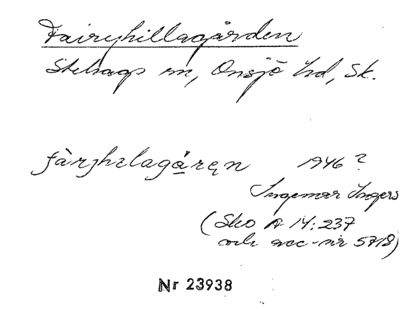 Fairyhillagården
Stehags sn, Onsjö hd, Sk.
färjhelagåręn 1946?
Ingemar Ingers
(Sko A 14:237
och acc-nr 5718)
Nr 23938